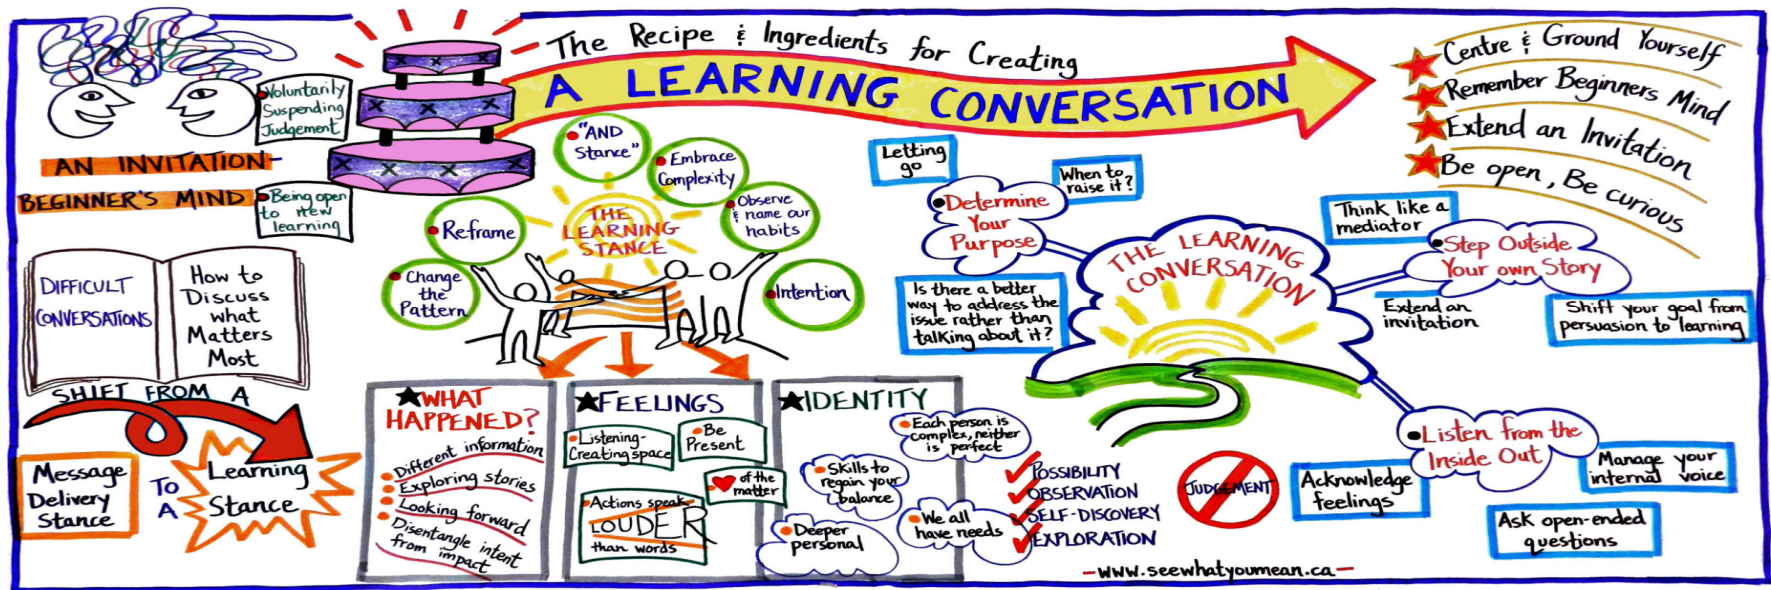 The Recipe & Ingredients for Creating
A LEARNING CONVERSATION
Centre & Ground Yourself
Remember Beginners Mind
Extend an Invitation
Be open, Be curious
Voluntarily
Suspending
Judgement
AN INVITATION-
BEGINNER'S MIND
Being open
to new
learning
DIFFICULT
CONVERSATIONS
How to
Discuss
what
Matters
Most
SHIFT FROM A
Message
Delivery
Stance
TO
A
Learning
Stance
"AND
Stance"
Embrace
Complexity
Observe
& name our
habits
Intention
Reframe
Change
the
Pattern
THE
LEARNING
STANCE
WHAT
HAPPENED?
Different information
Exploring stories
Looking forward
Disentangle intent
from impact
FEELINGS
Listening-
Creating space
Be
Present
of the
matter
Actions speak
LOUDER
than words
IDENTITY
Each person is
complex, neither
is perfect
Skills to
regain your
balance
We all
have needs
Deeper
personal
POSSIBILITY
OBSERVATION
SELF-DISCOVERY
EXPLORATION
JUDGEMENT
Letting
go
When to
raise it?
Determine
Your
Purpose
Is there a better
way to address the
issue rather than
talking about it?
THE LEARNING
CONVERSATION
Think like a
mediator
Step Outside
Your own Story
Extend an
invitation
Shift your goal from
persuasion to learning
Listen from the
Inside Out
Acknowledge
feelings
Manage your
internal voice
Ask open-ended
questions
-www.seewhatyoumean.ca-